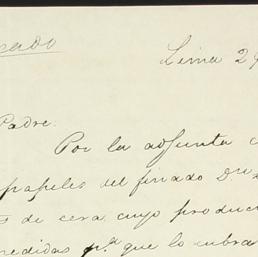 Lima 29
Padre.
Por la adjunta
papeles del finado Dn
de cera cuyo produc
medidas pa que lo cubra